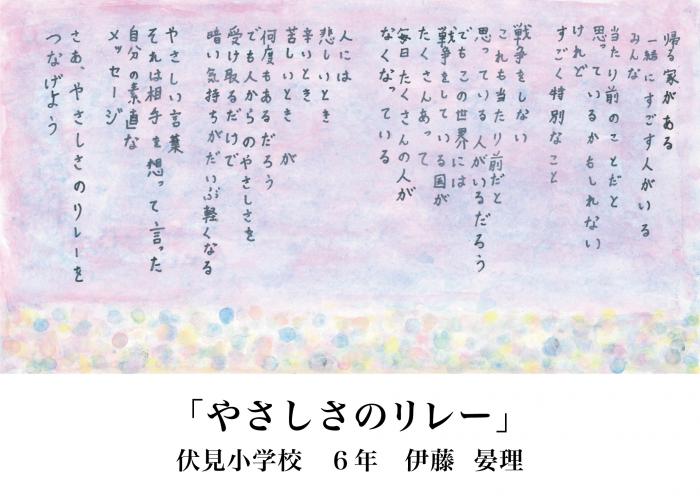 帰る家がある
一緒にすごす人がいる
みんな
当たり前のことだと
思っているかもしれない
けれど
すごく特別なこと
戦争をしない
これも当たり前だと
思っている人がいるだろう
でもこの世界には
戦争をしている国が
たくさんあって
毎日たくさんの人が
なくなっている
人には
悲しいとき
辛いとき
苦しいとき が
何度もあるだろう
でも人からのやさしさを
受け取るだけで
暗い気持ちがだいぶ軽くなる
やさしい言葉
それは相手を想って言った
自分の素直な
メッセージ
さあ、やさしさのリレーを
つなげよう
「やさしさのリレー」
伏見小学校 6年 伊藤 晏理